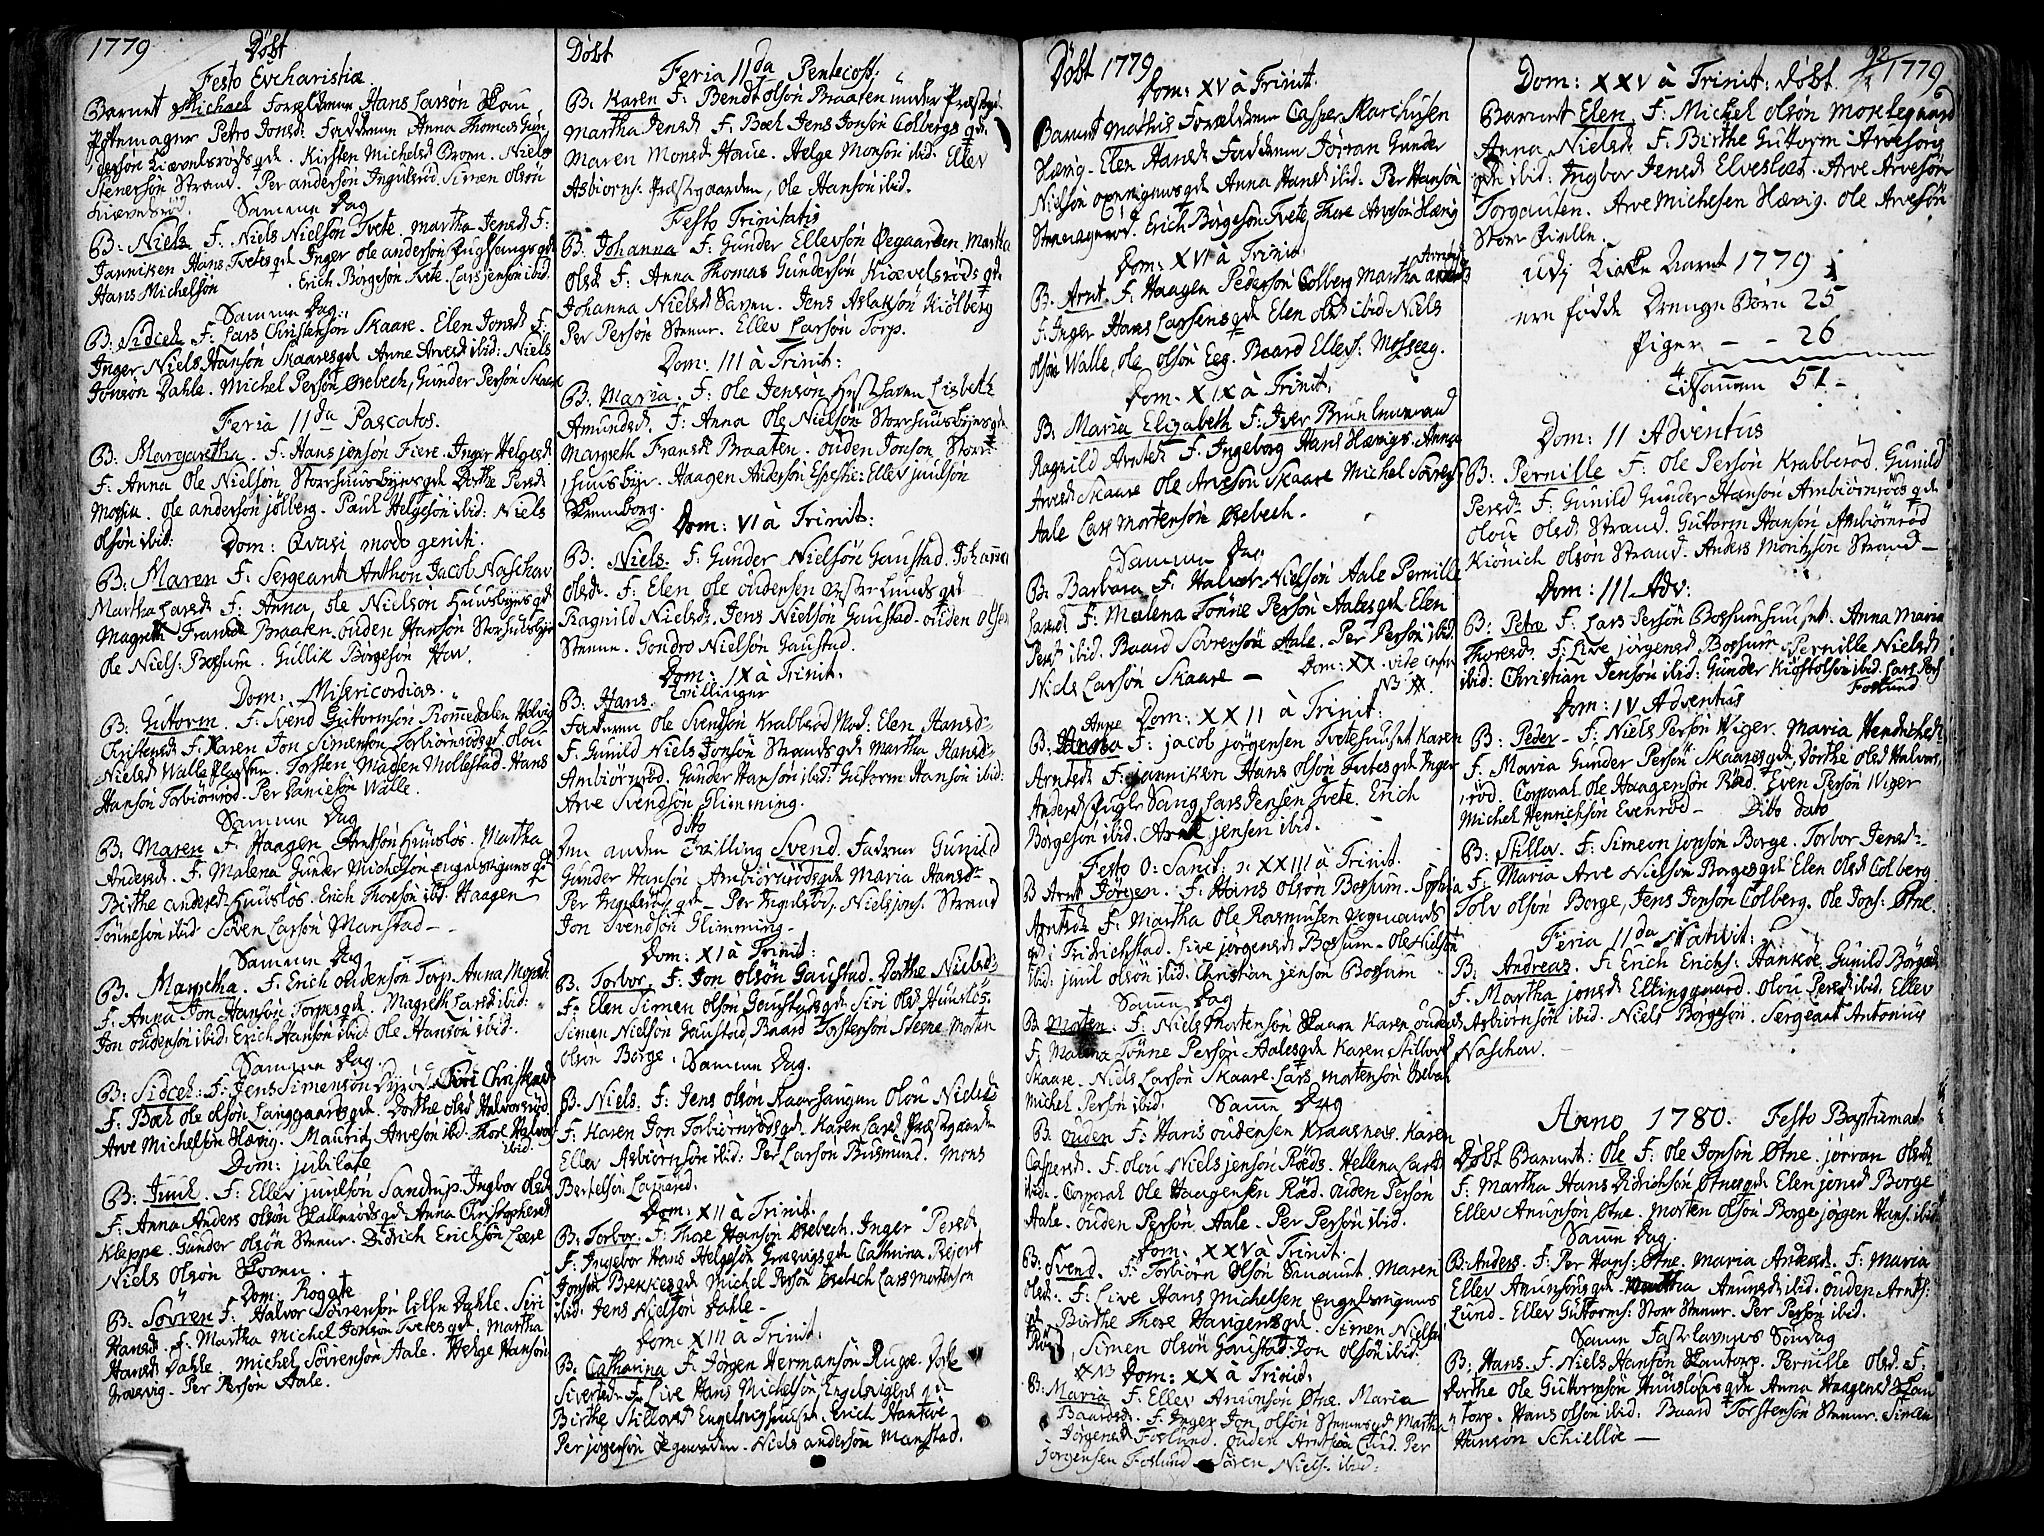 1779 Döbt
Festo Evcharistiæ
Barnet Michael Forældrene Hans Larsön
Pottemager Petro Jonsd: Fadderne Anna Thomas Gun
dersön Kiærelsröds qd. Kirsten Michelsd Broen. Niels
Stenersön Strand. Per andersön Ingulsröd. Simen olsön
Kiærelsröd. Samme Dag
B: Niels F. Niels Nielsön Tvete. Martha Jensd F:
Janniken Hans Tvetes qd Inger ole andersön Fuglesangs qd
Hans Michelsön Erich Börgesön Tvete. Lars jensön ibid.
Samme Dag
B: Sidcel F: Lars Christensön Skaare. Elen Jonsd F:
Inger Niels Hansön Skaares qd Anne Arvesd ibid: Niels
Jonsön Dahle. Michel Persön Ørebech, Gunder Persön Skaare
Feria IIda Pascatos.
B: Margaretha. F: Hans jonsön Fiere. Inger Helgesd
F: Anna Ole Nielsön Storhuusbyes qd Dorthe Persd
Mosen. Ole andersön jölberg. Paul Helgesön ibid: Niels
olsön ibid: Dom: Qvasi modo geniti.
B: Maren F: Sergeant Anthon Jacob Naschow
Martha Larsd F: Anna, ole Nielsön Huusbyes qd
Magreth Fransd Braaten. ouden Hansön Storhuusbye
Ole Niels: Bossum. Gullik Borgesön How.
Dom: Misericordias.
B: Guttorm. F: Svend Guttormsön Rommedalen Helvig
Christensd F: Karen Jon Simensön Torbiörnröds qd olou
Nielsd Walle Pladsen. Torsten Madsen Mollestad. Hans
Hansön Torbiörnröd. Per Danielsön Walle.
Samme Dag
B: Maren F. Haagen Hansön Huuslös. Martha
Andersd. F. Malena Gunder Michelsön Engelsvigens qd
Birthe andersd Huuslös. Erich Thoresön ibid. Haagen
Tönnesön ibid Sören Larsön Manstad -
Samme Dag
B: Margretha. F: Erich oudensön Torp. Anna Monsd
F: Anna Jon Hansön Torps qd. Magreth Larsd ibid:
Jon oudensön ibid: Erich Hansön ibid. Ole Hansön ibid.
Samme Dag.
B: Sidcel: F: Jens Simensön Dyröe. Siri Christensd
F: Boel ole olsön Langgaards qd. Dorthe olsd Halvorsröd
Arve Michelsön Hævig. Mauritz Arvesön ibid. Thore Halvor
ibid.
Dom: jubilate
B: Juul. F: Ellev juulsön Sandrup. Ingbor olsd
F: Anna Anders olsön Skallerøds qd Anna Christophersd
Kleppe. Gunder olsön Stenne. Didrich Erichsön Leere
Niels olsön Skoven.
Dom: Rogate
B: Sövren F: Halvor Sörensön Lille Dahle. Siri
Hansd. F: Martha Michel Jonsön Tvetes qd. Martha
Hansd Dahle. Michel Sövrensön Aale. Helge Hansön
Græsvig. Per Persön Aale.

Döbt
Feria IIda Pentecost:
B: Karen F: Bendt olsön Braaten under Præsteg:
Martha Jensd F: Boel Jens Jonsön Colbergs qd:
Maren Monsd Haue. Helge Monsön ibid. Ellev
Asbiorns: Præstgaarden, Ole Hansön ibid.
Festo Trinitatis
B: Johanna F: Gunder Ellevsön Øegaarden. Martha
olsd F: Anna Thomas Gundersön Kiærelsröds qd
Johanna Nielsd Sarm. Jens Aslaksön Kiölberg
Per Persön Stenne. Ellev Larsön Torp.
Dom: III à Trinit:
B: Maria. F: Ole Jensön Lisbeth
Amundsd. F: Anna ole Nielsön Storhuusbyes qd
Margreth Fransd Braaten. ouden Jonsön Stor:
huusbye. Haagen Andersön: Ellev juulsön
Dom: VI à Trinit:
B: Niels. F: Gunder Nielsön Gaustad. Johanne
olsd. F: Elen ole oudensen qd
Ragnild Nielsd. Jens Nielsön Gaustad. ouden olsen
Stenne. Gondro Nielsön Gaustad.
Dom: IX à Trinit:
Tvillinger
B: Hans.
Faderen Ole Svendsön Krabberød Mod: Elen Hansd:
F: Gunild Niels Jonsön Strands qd Martha Hansd:
Ambiörnröd. Gunder Hansön ibid: Guttorm Hansön ibid:
Arve Svendsön Glimming.
dito
Den anden Tvilling Svend. Fadrne Gunild
Gunder Hansön Ambiörnröds qd Maria Hansd:
Per Ingulsröds qd - Per Ingulsröd. Niels jons: Strand
Jon Svendsön Glimming -
Dom: XI à Trinit:
B: Torbor. F: Jon olsön Gaustad. Dorthe Nielsd:
F: Elen Simen olsön Gaustads qd. Siri olsd Huuslös.
Simen Nielsön Gaustad, Baard Torstensön Steene. Morten
olsön Borge. Samme Dag.
B: Niels. F: Jens olsön Kaarhaugen olou Nielsd
F: Karen Jon Torbiörnröds qd. Karen Larsd Præstgaarden
Ellev Asbiörnsön ibid: Per Larsön Buskund. Mons
Bertelsön.
Dom: XII à Trinit:
B: Torbor. F: Thore Hansön Ørebech. Inger Persd
F: Ingebor Hans Helgesön Græsvigs qd Cathrina
Jonsön Brekkes qd. Michel Persön Ørebech Lars Mortensön
ibid. Jens Nielsön Dahle -
Dom: XIII à Trinit:
B: Catharina F: Jörgen Hermansön Rugoe.
Sivertsd. F: Live Hans Michelsön Engelsvigens qd
Birthe Stillovsd Engelsvighuuset. Erich Hankoe
Per jörgensön Øegaarden. Niels andersön Manstad.

Döbt 1779
Dom: XV à Trinit:
Barnet Mathis Forældrene Casper Marchusen
Hævig. Elen Hansd Fadderne Jörran Gunder
Nielsön Opengiuns qd Anna Hansd ibid. Per Hansön
Erich Börgesön Tvete, Thore Arvesön Hævig
Dom: XVI à Trinit: Arnesd
B: Arnt. F: Haagen Pedersön Colberg Martha
F: Inger Hans Larsens qd Elen olsd ibid Niels
olsön Walle, ole olsön Eeg. Baard Ellevs: Mosseeg.
Dom: XIX à Trinit:
B: Maria Elizabeth F: Iver
Ragnild Arntsd F: Ingeborg Hans Hævigs. Anna
Arvesd Skaare Ole Arvesön Skaare Michel Sövrens
Aale Lars Mortensön Ørebech.
Samme Dag
B: Barbara F: Halvor Nielsön Aale Pernille
Larsd F: Malena Tönne Persön Aales qd Elen
Persd ibid. Baard Sövrensön Aale. Per Persön ibid.
Niels Larsön Skaare - Dom: XX. vide infra
NB XX.
Dom: XXII à Trinit:
Anne
B: F: jacob jörgensen Tvetehuuset Karen
Arntsd F: janniken Hans olsön Tvetes qd Inger
Andersd Fugle Sang Lars Jensen Tvete. Erich
Börgesön ibid. Arne jensen ibid.
Festo O: Sanct. ɔ: XXIII à Trinit.
B Arnt Jörgen. F: Hans olsön Bossum. Sophia
Arntsd F: Martha Ole Rasmusen qd i Fridrichstad. Live jörgensd Bossum - Ole Nielsen
ibid. juul olsön ibid. Christian jensön Bossum
Samm Dag
B: Morten. F: Niels Mortensön Skaare Karen oudensd
F: Malena Tönne Persön Aales qd Karen Stillovsd
Skaare. Niels Larsön Skaare. Lars Mortensön Ørebæk
Michel Persön ibid. Samm Dag
B: ouden F: Hans oudensen Kraasnes. Karen
Caspersd. F: olou Niels jensön Röeds. Hellena Larsd
ibid. Corporal Ole Haagensen Röed. ouden Persön
Aale. ouden Persön Aale. Per Persön ibid.
Dom: XXV à Trinit.
B: Svend. F: Torbiörn olsön. Maren
olsd. F: Live Hans Michelsen Engelsvigens
qd. Birthe Thore Haugens qd. Simen Nielsön
Röd, Simen olsön Gaustad Jon olsön ibid:
XX NB Dom: XX à Trinit:
B: Maria F: Ellev Amunsön Øtne. Maria
Baardsd. F: Inger Jon olsön Stennes qd Martha
Jörgensd Foslund. ouden Arntsön Lund. Per
Jörgensen Foslund. Sören Niels: ibid:

92
Dom: XXV à Trinit: Döbt. 1779
Barnet Elen F: Michel olsön Mordegaard
Anna Nielsd. F: Birthe Guttorm Arvesöns
qd ibid: Ingbor Jensd Elveslet. Arve Arvesön
Torgauten. Arve Michelsen Hævig. Ole Arvesön
Stor Fielle.
Udj Kirke Aaret 1779
ere fødde Drenge Börn 25
Piger - - 26
Tilsammen 51 -
Dom: II Adventus
B: Pernille F: Ole Persön Krabberød. Gunild
Persd. F: Gunild Gunder Hansön Ambiörnröds qd
olou olsd Strand. Guttorm Hansön Ambiörnröd
Kiönich olsön Strand. Anders Moritzsön Strand -
Dom: III Adv:
B: Petro F: Lars Persön Bossumhuuset. Anna Maria
Thoresd. F: Live jörgensd Bossum. Pernille Nielsd
ibid: Christian Jensön ibid: Gunder Kiostolsön ibid. Lars Pers
Foslund
Dom: IV Adventus
B: Peder - F: Niels Persön Wiger. Maria Hendrichsd
F: Maria Gunder Persön Skaares qd, Dorthe olsd Halvors
röd. Corporal Ole Haagensön Röd. Even Persön Wiger
Michel Henrichsön Evenröd - Dito Dato
B: Stillov. F: Simeon jonsön Borge. Torbor Jensd:
F: Maria Arve Nielsön Borges qd Elen olsd Colberg.
Tolv olsön Borge, Jens Jonsön Colberg. Ole Jons: Øtne.
Feria IIda Nativit:
B: Andreas. F: Erich Erichs: Hankøe. Gunild Börgesd
F. Martha jonsd Eltinggaard. olou Persd ibid. Ellev
Asbiörnsön ibid. Niels Borgesön. Sergeant Antonius
Naschow.
Anno 1780. Festo Baptismat
Döbt Barnet: Ole F: Ole Jonsön Øtne. jörran olsd:
F: Martha Hans Didrichsön Øtnes qd Elen jensd Borge
Ellev Amunsön Øtne. Morten olsön Borge jörgen Hans: ibid:
Samm Dag.
B: Anders. F: Per Hans: Øtne. Maria Andersd. F: Maria
Ellev Amunsöns qd. Martha Amunsd: ibid. ouden Arnts:
Lund. Ellev Guttorms: Stor Stenne. Per Persön ibid.
Samm Fastelavens Søndag
B: Hans. F. Niels Hansön Skantorp. Pernille olsd. F:
Dorthe Ole Guttormsön Huuslöses qd Anna Haagensd Skan
torp. Hans olsön ibid: Baard Torstensön Stenne. Simen
Hansön Schielløe -